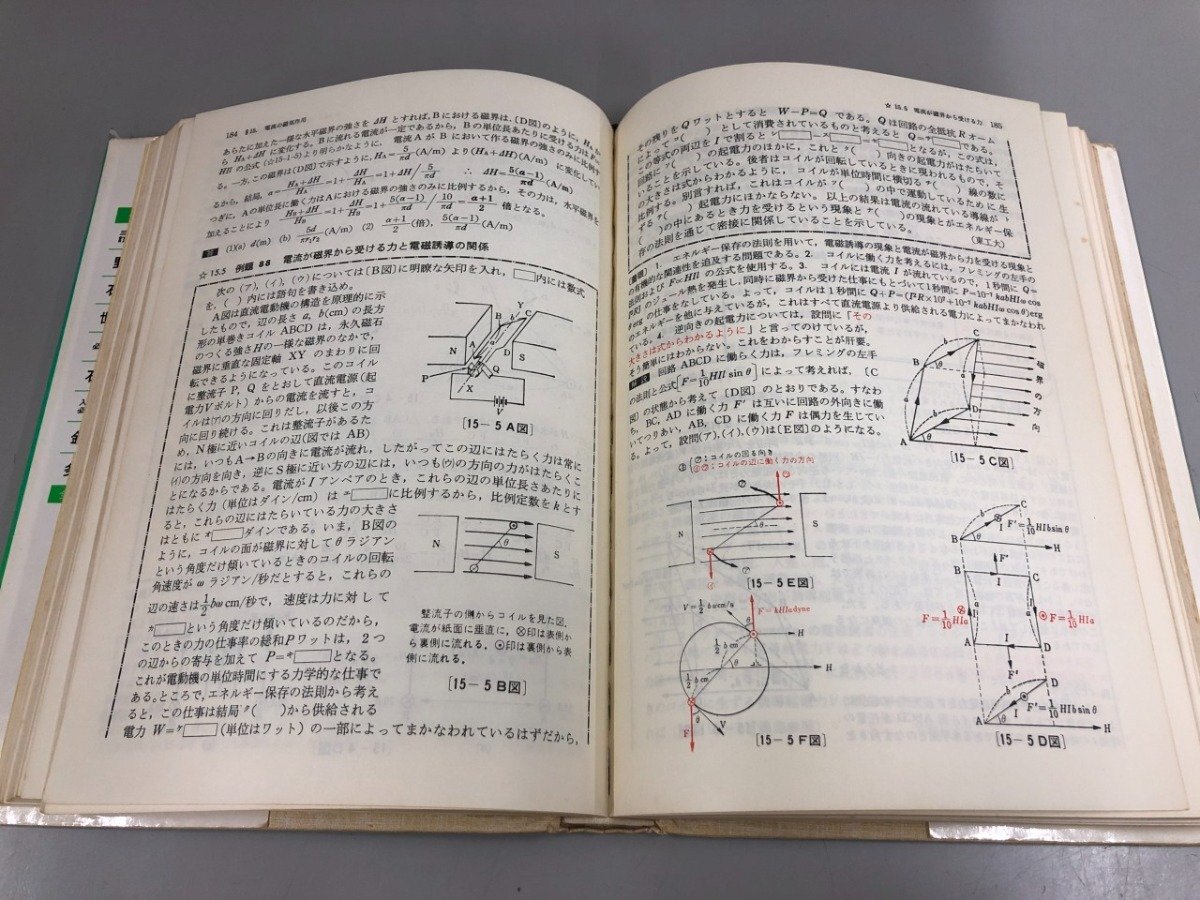 184 §15. 電流の磁気作用
あらたに加えた一様な水平磁界の強さを ΔH とすれば，Bにおける磁界は，〔D図〕のように，HBか
ら HB+ΔH に変化する。Bに流れる電流が一定であるから，Bの単位長あたりに受ける力は
HIl の公式 (☆15-1-5) より明らかなように，電流AがBにおいて作る磁界の強さのみに比例
る。一方，この磁界は〔D図〕で示すように，
るから，結局，
つぎに，Aの単位長に働く力はAにおける磁界の強さのみに比例するから，その力は，水平磁界を
加えることにより
倍となる。
答 (1)(a) d(m) (b) 5d/πr₁r₂ (A/m) (2) (α+1)/2 (倍)， 5(α−1)/πd (A/m)
☆ 15.5 例題 88 電流が磁界から受ける力と電磁誘導の関係
次の(ア)，(イ)，(ウ)については〔B図〕に明瞭な矢印を入れ，□内には数式
を，( )内には語句を書き込め。
A図は直流電動機の構造を原理的に示
したもので，辺の長さ a, b(cm) の長方
形の単巻きコイル ABCD は，永久磁石
のつくる強さHの一様な磁界のなかで，
磁界に垂直な固定軸 XY のまわりに回
転できるようになっている。このコイル
に整流子 P, Q をとおして直流電源（起
電力Vボルト）からの電流を流すと，コ
イルは(ア)の方向に回りだし，以後この方
向に回り続ける。これは整流子があるた
め，N極に近いコイルの辺（図では AB）
には，いつもA→Bの向きに電流が流れ，したがってこの辺にはたらく力は常に
(イ)の方向を向き，逆にS極に近い方の辺には，いつも(ウ)の方向の力がはたらくこ
とになるからである。電流が I アンペアのとき，これらの辺の単位長さあたりに
はたらく力（単位はダイン/cm）は ェ□に比例するから，比例定数をkとす
ると，これらの辺にはたらいている力の大きさ
はともに ォ□ダインである。いま，B図の
ように，コイルの面が磁界に対して θ ラジアン
という角度だけ傾いているときのコイルの回転
角速度が ω ラジアン/秒だとすると，これらの
辺の速さは 1/2 bω cm/秒で，速度は力に対して
ヵ□という角度だけ傾いているのだから，
このときの力の仕事率の総和Pワットは，2つ
の辺からの寄与を加えて P=キ□となる。
これが電動機の単位時間にする力学的な仕事で
ある。ところで，エネルギー保存の法則から考え
ると，この仕事は結局 ク( )から供給される
電力 W=ケ□（単位はワット）の一部によってまかなわれているはずだから，
N
S
P
Q
X
Y
A
B
C
D
b
V
[15−5 A図]
N
S
θ
整流子の側からコイルを見た図。
電流が紙面に垂直に，⊗印は表側か
ら裏側に流れる。⊙印は裏側から表
側に流れる。
[15−5 B図]
☆ 15.5 電流が磁界から受ける力 185
その残りをQワットとすると W−P=Q である。Qは回路の全抵抗Rオーム
によって コ( )として消費されているものと考えると Q=サ□である。
この等式の両辺を I で割ると シ□=ス□+セ□となるが，この式は，
回路に ソ( )の起電力のほかに，これと タ( )向きの起電力がはたらいて
いることを示している。後者はコイルが回転しているときに現われるもので，そ
の大きさは式からわかるように，コイルが単位時間に横切る チ( )線の数に
比例する。別言すれば，これはコイルが ツ( )の中で運動しているために生
ずる テ( )起電力にほかならない。以上の結果は電流の流れている導線が ト
( )の中にあるとき力を受けるという現象と ナ( )の現象とがエネルギー保
存の法則を通じて密接に関係していることを示している。 （東工大）
1. エネルギー保存の法則を用いて，電磁誘導の現象と電流が磁界から力を受ける現象と
の有機的な関連性を追及する問題である。2. コイルに働く力を考えるには，フレミングの左手の
法則および F∝HIl の公式を使用する。3. コイルには電流 I が流れているので，1秒間に Q=
I²R のジュール熱を発生し，同時に磁界から受けた仕事にもとづいて1秒間に P=10⁻⁷ kabHIω cos
θ erg の仕事をなしている。よって，コイルは1秒間に Q+P=(I²R×10⁷+10⁻⁷ kabHIω cosθ)erg
のエネルギーを他に与えているが，これはすべて直流電源より供給される電力によってまかなわれて
いる。4. 逆向きの起電力については，設問に「その
大きさは式からわかるように」と言ってのけているが，
そう簡単にはわからない。これをわからすことが肝要。
解説 回路 ABCD に働らく力は，フレミングの左手
の法則と公式[F=1/10 HIl sinθ]によって考えれば，〔C
図〕の状態から考えて〔D図〕のとおりである。すなわ
ち，BC，AD に働く力 F' は互いに回路の外向きに働
いてつりあい，AB，CD に働く力 F は偶力を生じてい
る。よって，設問(ア)，(イ)，(ウ)は〔E図〕のようになる。
磁界の方向
A
B
C
D
a
b
θ
[15−5 C図]
㋐：コイルの回る向き
㋑㋒：コイルの辺に働く力の方向
N
S
θ
[15−5 E図]
V=1/2 bω cm/s
F=kHIa dyne
1/2 b cm
1/2 b cm
θ
H
F
V
[15−5 F図]
F'=1/10 HIb sinθ
H
B
C
F'
I
F=1/10 HIa
F=1/10 HIa
A
D
F'
I
F'=1/10 HIb sinθ
H
[15−5 D図]